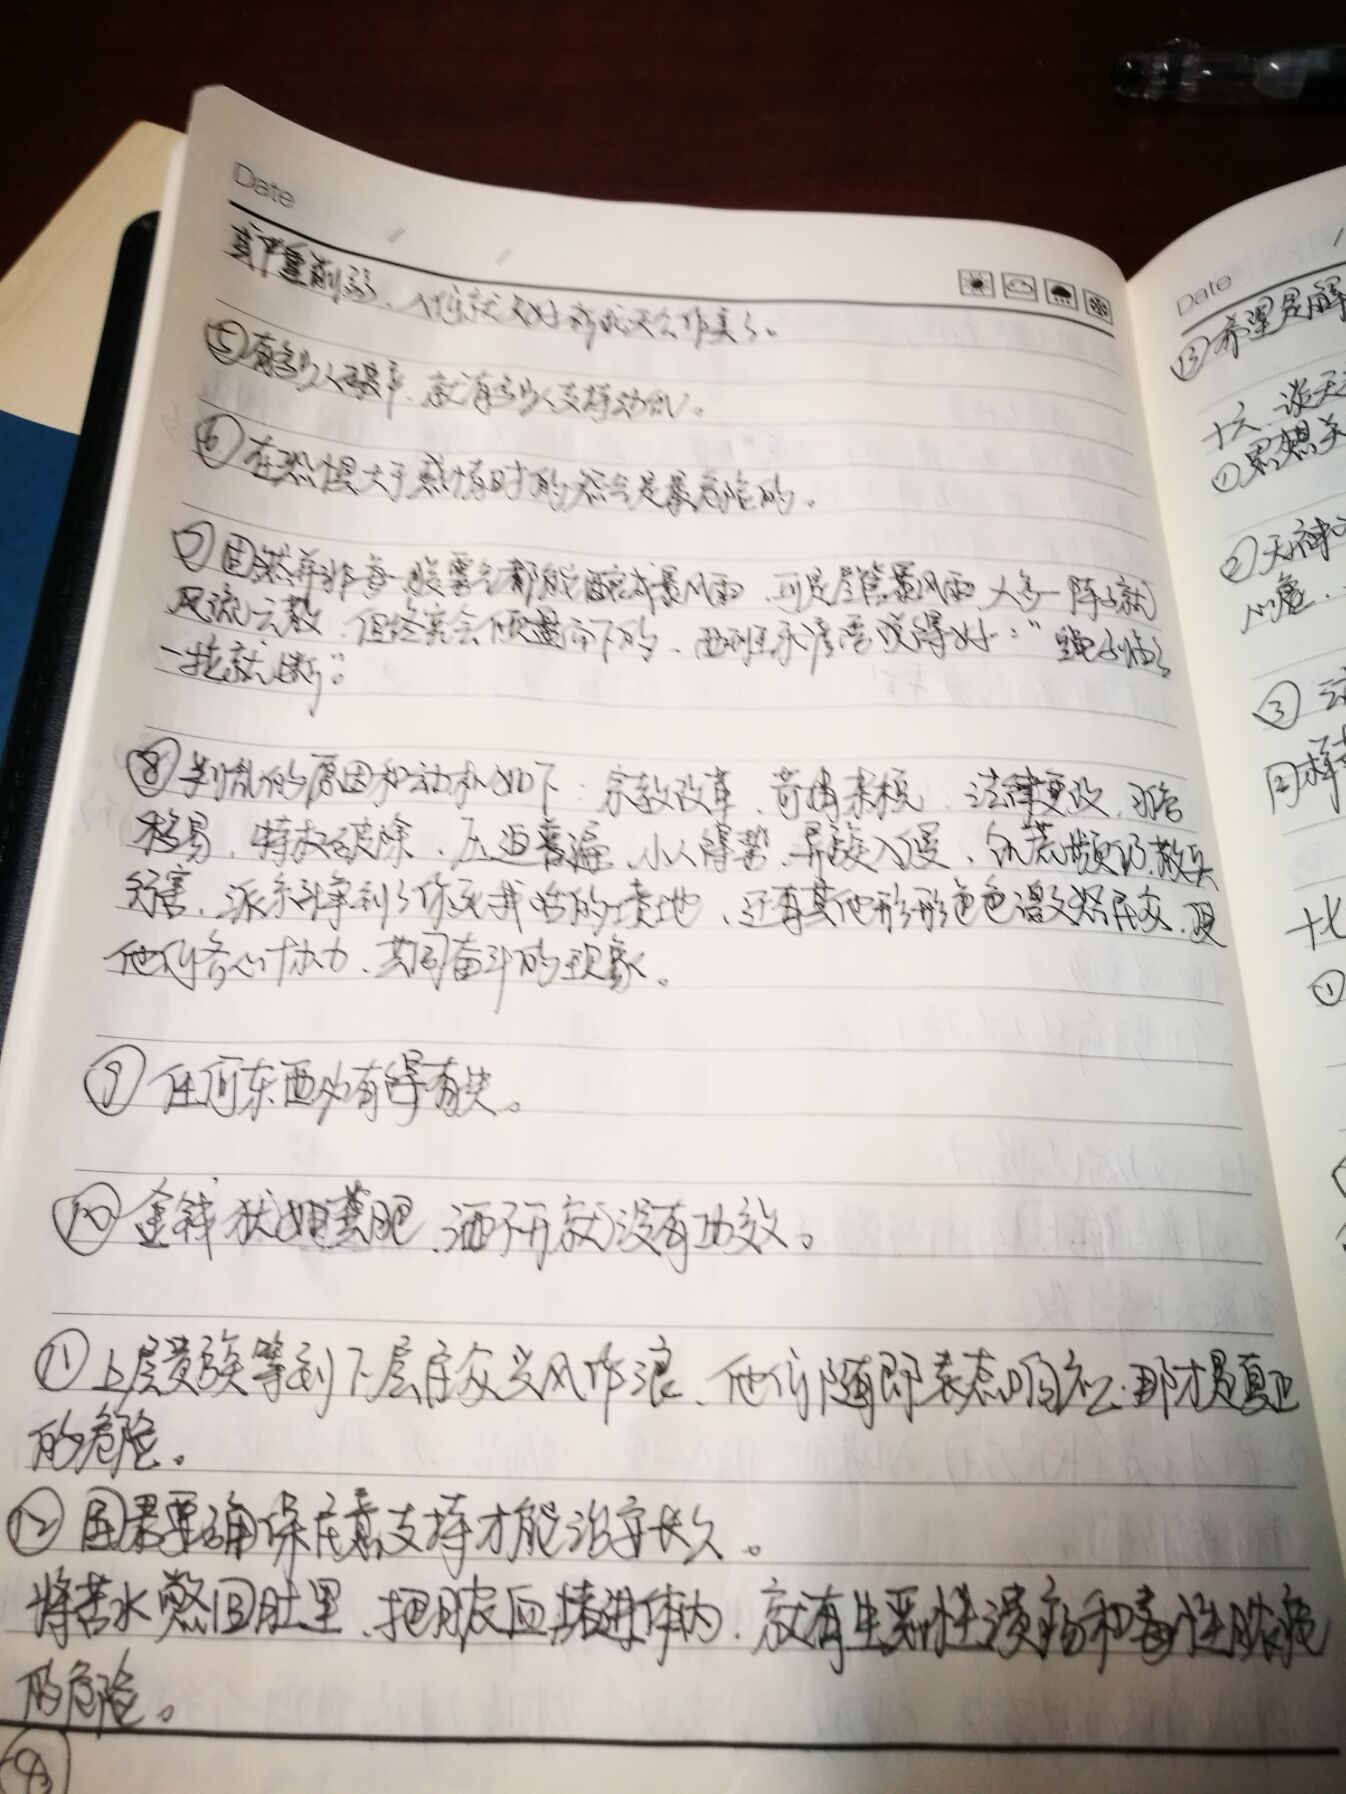 Date
或严重削弱、人们就只好祈祝天公作美了。
⑤有多少人破产，就有多少人支持动乱。
⑥在恐惧大于感情时的怒气是最危险的。
⑦固然并非每一股雾气都能酿成暴风雨，可是尽管暴风雨大多一阵子就
风流云散，但终究会倾盆而下的、西班牙谚语说得好："绳子临了
一拉就断"。
⑧判乱的原因和动机如下：宗教改革、苛捐杂税、法律更改、习俗
移易、特权破除、压迫普遍、小人得势、异族入侵、饥荒频仍、散兵
为害、派系斗争到了你死我活的境地、还有其他形形色色激怒民众、使
他们齐心协力、共同奋斗的现象。
⑨任何东西必有得有失。
⑩金钱犹如粪肥、洒不开就没有功效。
⑪上层贵族等到下层民众兴风作浪、他们随即表态响应、那才是真正
的危险。
⑫国君要确保民意支持才能治安长久。
将苦水憋回肚里、把脓血堵进体内、就有生恶性溃疡和毒性脓疱
的危险。
Date
⑬希望是解
十六、谈天
①思想关
②天神
心危、
③
同样
十七
①